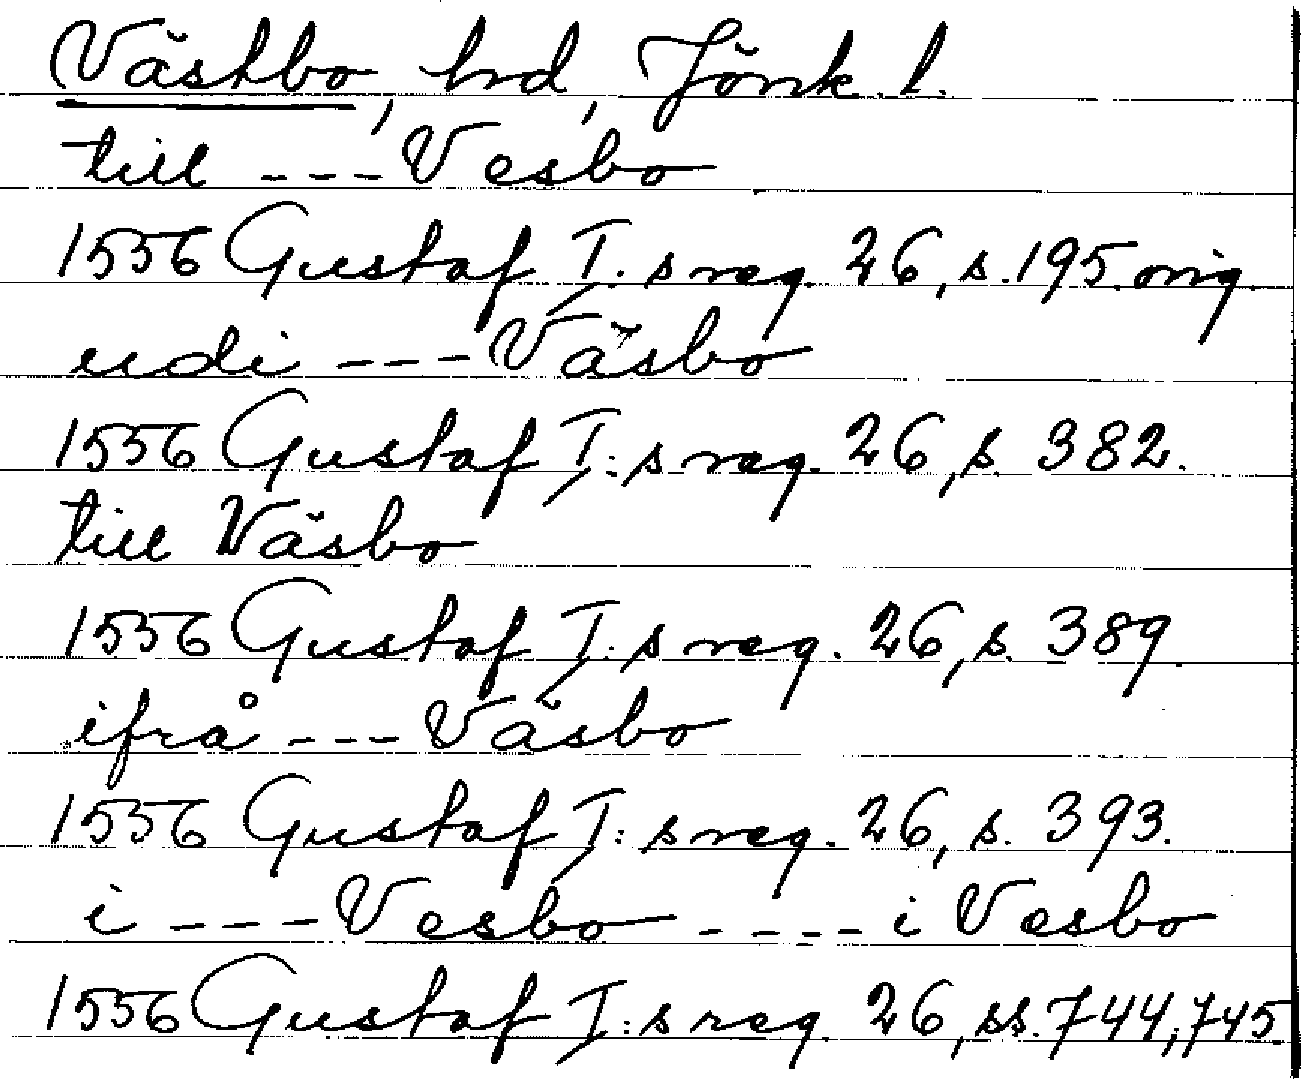 Västbo, hd, Jönk. l.
till --- Vesbo
1556 Gustaf I. s reg. 26, s. 195. orig.
udi --- Väsbo
1556 Gustaf I: s reg. 26, s. 382.
till Väsbo
1556 Gustaf I: s reg. 26, s. 389.
ifrå --- Väsbo
1556 Gustaf I: s reg. 26, s. 393.
i --- Vesbo ---- i Vesbo
1556 Gustaf I: s reg. 26, ss. 744, 745.